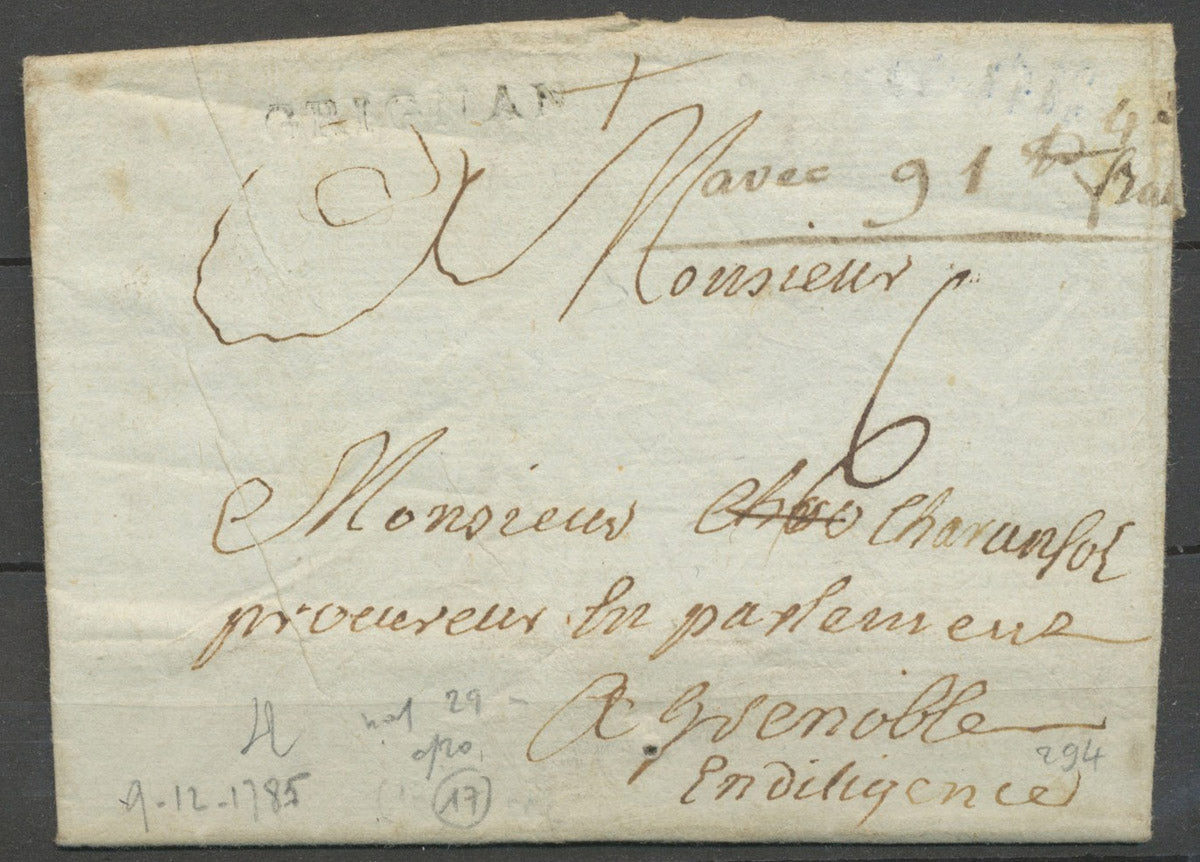 GRIGNAN
avec 91
Monsieur
6
Monsieur
procureur En parlement
A grenoble
En diligence
294
29
17
9-12-1785